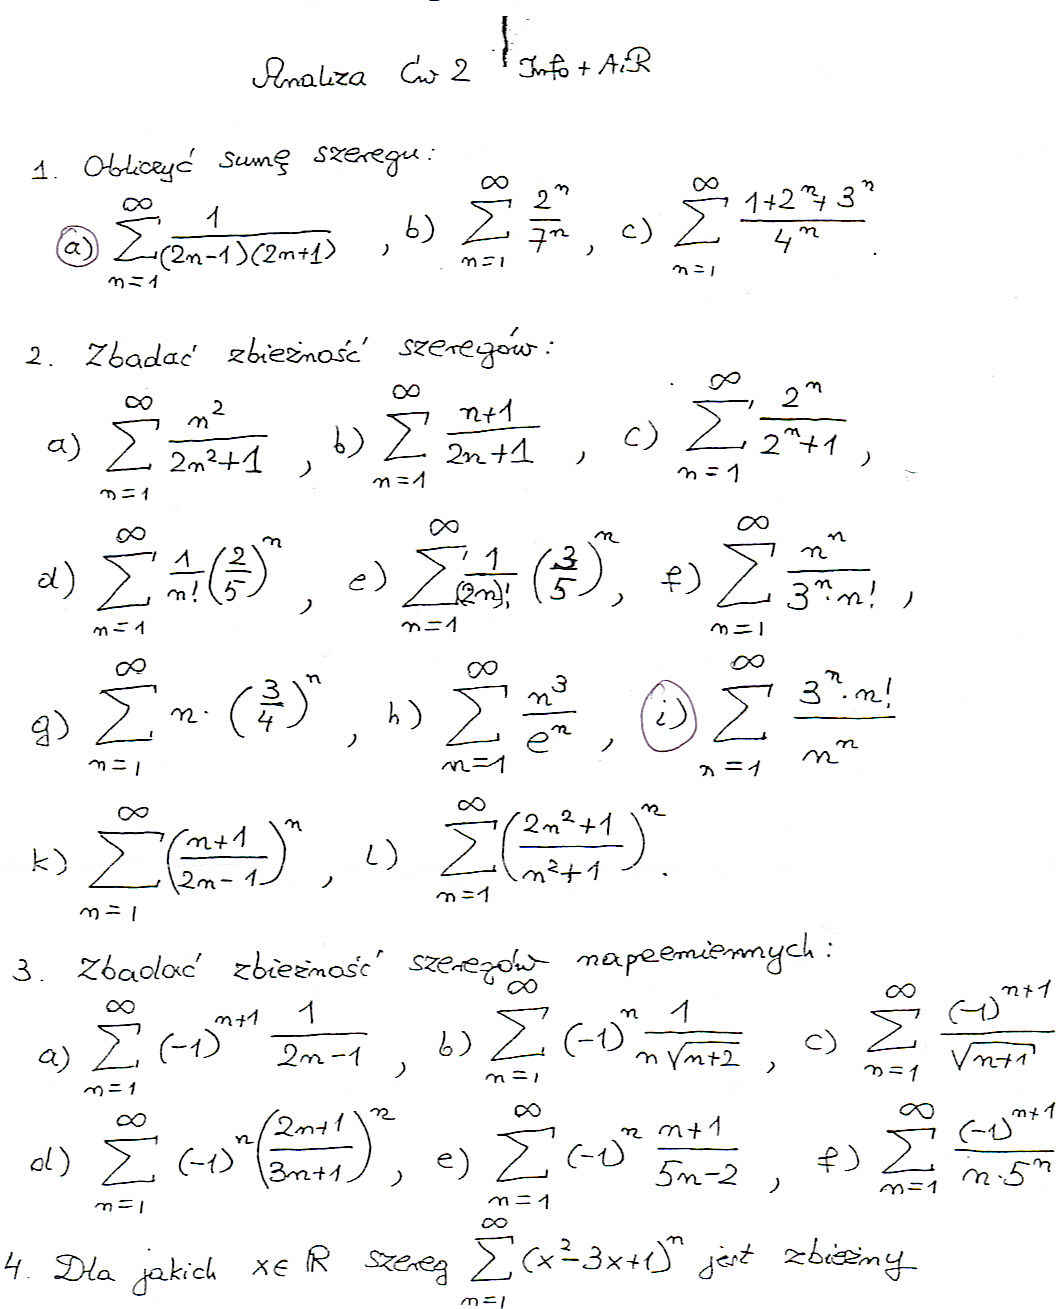 Analiza Ćw 2 Info + AiR
1. Obliczyć sumę szeregu:
a) ∑_{n=1}^{∞} 1/((2n-1)(2n+1)) , b) ∑_{n=1}^{∞} 2^n/7^n , c) ∑_{n=1}^{∞} (1+2^n+3^n)/4^n .
2. Zbadać zbieżność szeregów:
a) ∑_{n=1}^{∞} n^2/(2n^2+1) , b) ∑_{n=1}^{∞} (n+1)/(2n+1) , c) ∑_{n=1}^{∞} 2^n/(2^n+1) ,
d) ∑_{n=1}^{∞} 1/n! (2/5)^n , e) ∑_{n=1}^{∞} 1/(2n)! (3/5)^n , f) ∑_{n=1}^{∞} n^n/(3^n·n!) ,
g) ∑_{n=1}^{∞} n·(3/4)^n , h) ∑_{n=1}^{∞} n^3/e^n , i) ∑_{n=1}^{∞} (3^n·n!)/n^n
k) ∑_{n=1}^{∞} ((n+1)/(2n-1))^n , l) ∑_{n=1}^{∞} ((2n^2+1)/(n^2+1))^n .
3. Zbadać zbieżność szeregów naprzemiennych:
a) ∑_{n=1}^{∞} (-1)^{n+1} 1/(2n-1) , b) ∑_{n=1}^{∞} (-1)^n 1/(n√(n+2)) , c) ∑_{n=1}^{∞} (-1)^{n+1}/√(n+1)
d) ∑_{n=1}^{∞} (-1)^n ((2n+1)/(3n+1))^n , e) ∑_{n=1}^{∞} (-1)^n (n+1)/(5n-2) , f) ∑_{n=1}^{∞} (-1)^{n+1}/(n·5^n)
4. Dla jakich x∈ℝ szereg ∑_{n=1}^{∞} (x^2-3x+1)^n jest zbieżny